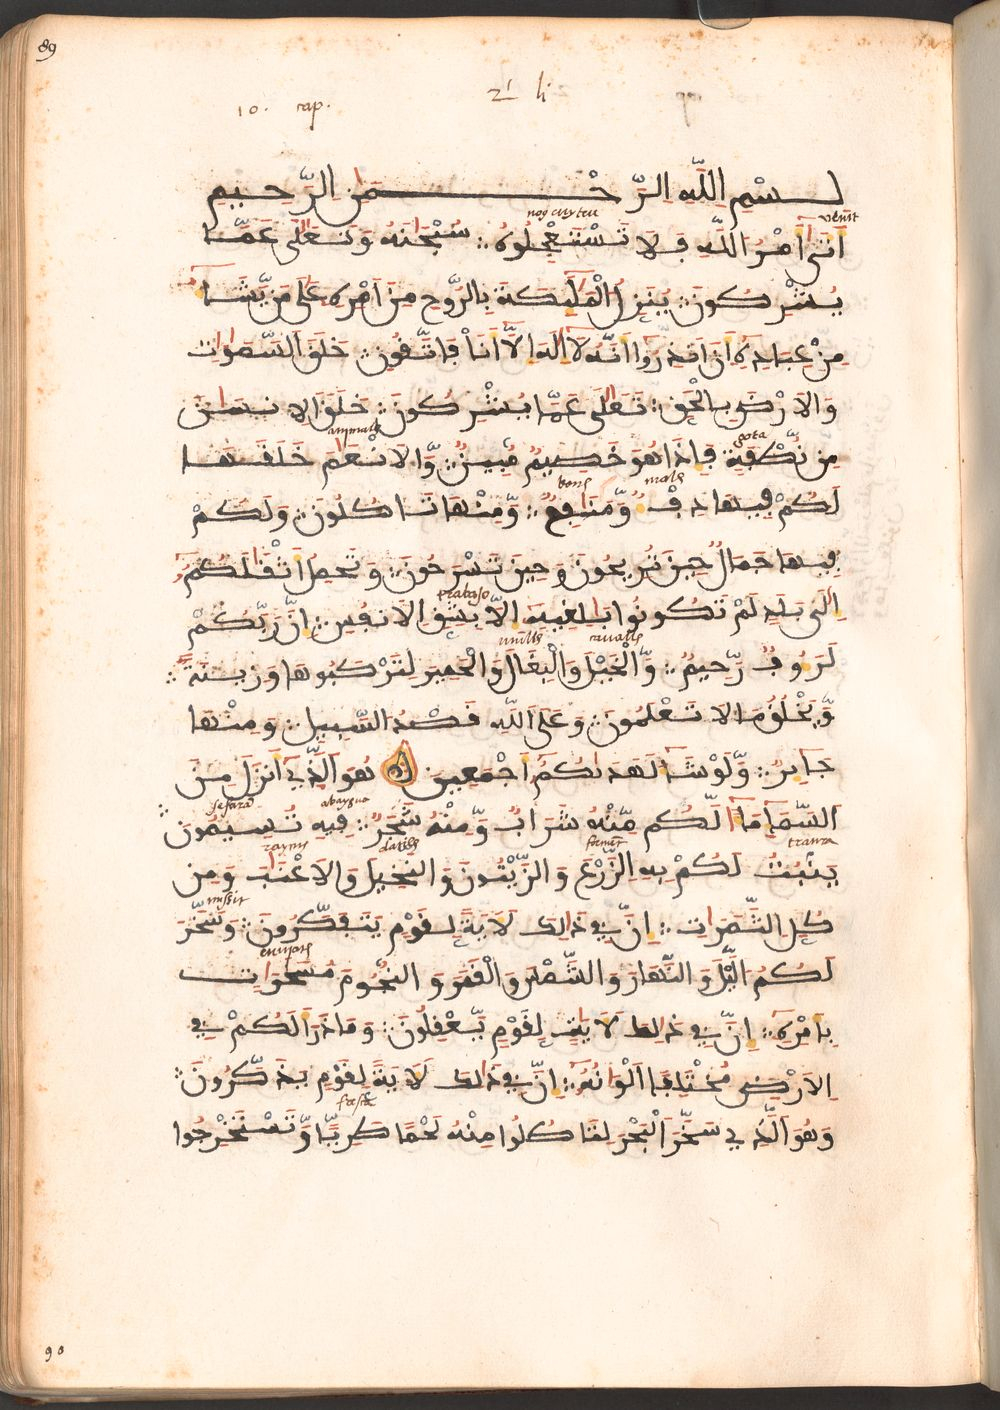 89
10. cap. 2 li
بسْمِ اللَّهِ الرَّحْمَٰنِ الرَّحِيمِ
venit
أَتَىٰ أَمْرُ اللَّهِ فَلَا تَسْتَعْجِلُوهُ سُبْحَٰنَهُ وَتَعَٰلَىٰ عَمَّا
يُشْرِكُونَ يُنَزِّلُ الْمَلَٰئِكَةَ بِالرُّوحِ مِنَ اَمْرِهِ عَلَىٰ مَنْ يَّشَاءُ
مِنْ عِبَادِهِ أَنَ اَنذِرُوا أَنَّهُ لَا إِلَٰهَ إِلَّا أَنَا فَاتَّقُونِ خَلَقَ السَّمَٰوَٰتِ
وَالَارْضَ بِالْحَقِّ تَعَٰلَىٰ عَمَّا يُشْرِكُونَ خَلَقَ الِانسَٰنَ
animals gota
مِن نُّطْفَةٍ فَإِذَا هُوَ خَصِيمٌ مُّبِينٌ وَّالَانْعَٰمَ خَلَقَهَا
لَكُمْ فِيهَا دِفْءٌ وَّمَنَٰفِعُ وَمِنْهَا تَاكُلُونَ وَلَكُمْ
فِيهَا جَمَالٌ حِينَ تُرِيحُونَ وَحِينَ تَسْرَحُونَ وَتَحْمِلُ أَثْقَالَكُمْ
trabajo
إِلَىٰ بَلَدٍ لَّمْ تَكُونُوا بَٰلِغِيهِ إِلَّا بِشِقِّ الَانفُسِ إِنَّ رَبَّكُمْ
لَرَءُوفٌ رَّحِيمٌ وَّالْخَيْلَ وَالْبِغَالَ وَالْحَمِيرَ لِتَرْكَبُوهَا وَزِينَةً
وَّيَخْلُقُ مَا لَا تَعْلَمُونَ وَعَلَى اللَّهِ قَصْدُ السَّبِيلِ وَمِنْهَا
جَائِرٌ وَّلَوْ شَاءَ لَهَدَىٰكُمُ أَجْمَعِينَ هُوَ الَّذِي أَنزَلَ مِنَ
السَّمَاءِ مَاءً لَّكُم مِّنْهُ شَرَابٌ وَّمِنْهُ شَجَرٌ فِيهِ تُسِيمُونَ
يُنبِتُ لَكُمْ بِهِ الزَّرْعَ وَالزَّيْتُونَ وَالنَّخِيلَ وَالَاعْنَٰبَ وَمِن
misit
كُلِّ الثَّمَرَٰتِ إِنَّ فِي ذَٰلِكَ لَآيَةً لِّقَوْمٍ يَتَفَكَّرُونَ وَسَخَّرَ
لَكُمُ الَّيْلَ وَالنَّهَارَ وَالشَّمْسَ وَالْقَمَرَ وَالنُّجُومَ مُسَخَّرَٰتٍ
بِأَمْرِهِ إِنَّ فِي ذَٰلِكَ لَآيَٰتٍ لِّقَوْمٍ يَّعْقِلُونَ وَمَا ذَرَأَ لَكُمْ فِي
الَارْضِ مُخْتَلِفًا أَلْوَٰنُهُ إِنَّ فِي ذَٰلِكَ لَآيَةً لِّقَوْمٍ يَذَّكَّرُونَ
وَهُوَ الَّذِي سَخَّرَ الْبَحْرَ لِتَاكُلُوا مِنْهُ لَحْمًا طَرِيًّا وَّتَسْتَخْرِجُوا
90